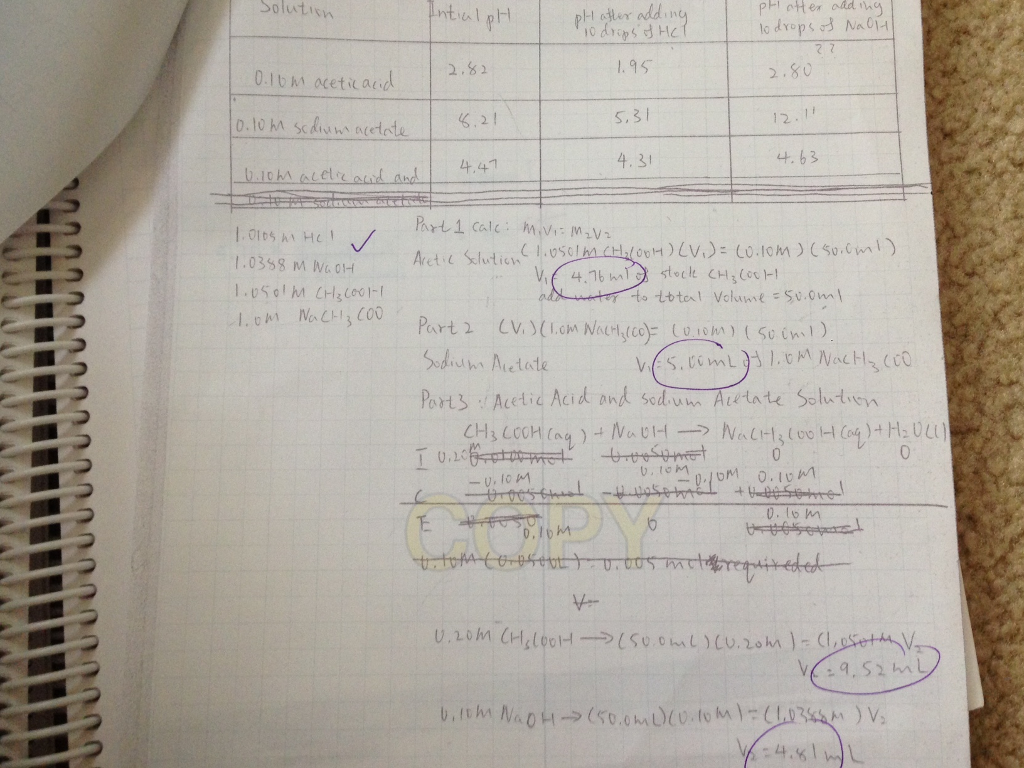 Solution Intial pH pH after adding 10 drops of HCl pH after adding 10 drops of NaOH
??
0.10m acetic acid 2.82 1.95 2.80
0.10m sodium acetate 8.21 5.31 12.11
0.10m acetic acid and 4.47 4.31 4.63
0.10m sodium acetate
1.0105m HCl ✓
1.0388 M NaOH
1.0501M CH3COOH
1.0m NaCH3COO
Part 1 calc: M1V1=M2V2
Acetic Solution (1.0501M CH3COOH)(V1)=(0.10M)(50.0ml)
V1= 4.76ml of stock CH3COOH
add water to total volume = 50.0ml
Part 2 (V1)(1.0M NaCH3COO)=(0.10m)(50.0ml)
Sodium Acetate V1=5.00mL of 1.0M NaCH3COO
Part 3: Acetic Acid and sodium Acetate Solution
CH3COOH(aq) + NaOH → NaCH3COOH(aq)+H2O(l)
I 0.20M 0.0100mol 0.0050mol 0 0
0.10M
-0.10M -0.10M 0.10M
C 0.0050mol 0.0050mol +0.0050mol
E 0.0050 0.10M 0 0.10M 0.0050mol
COPY
0.10M(0.050L)=0.005mol required
V=
0.20M CH3COOH → (50.0mL)(0.20m)=(1.0501M V2
V2=9.52mL
0.10M NaOH → (50.0mL)(0.10M)=(1.0388m)V2
V2=4.81mL